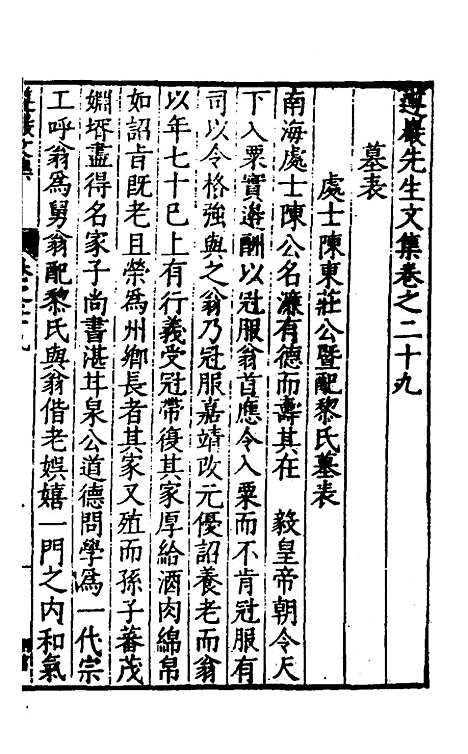 遵巖先生文集卷之二十九
墓表
處士陳東莊公暨配黎氏墓表
南海處士陳公名濂有德而壽其在 毅皇帝朝令天
下入粟實邊酬以冠服翁首應令入粟而不肯冠服有
司以令格強與之翁乃冠服嘉靖改元優詔養老而翁
以年七十巳上有行義受冠帶復其家厚給酒肉綿帛
如詔旨既老且榮爲州鄉長者其家又殖而孫子蕃茂
婣壻盡得名家子尚書湛甘泉公道德問學爲一代宗
工呼翁爲舅翁配黎氏與翁偕老娛嬉一門之內和氣